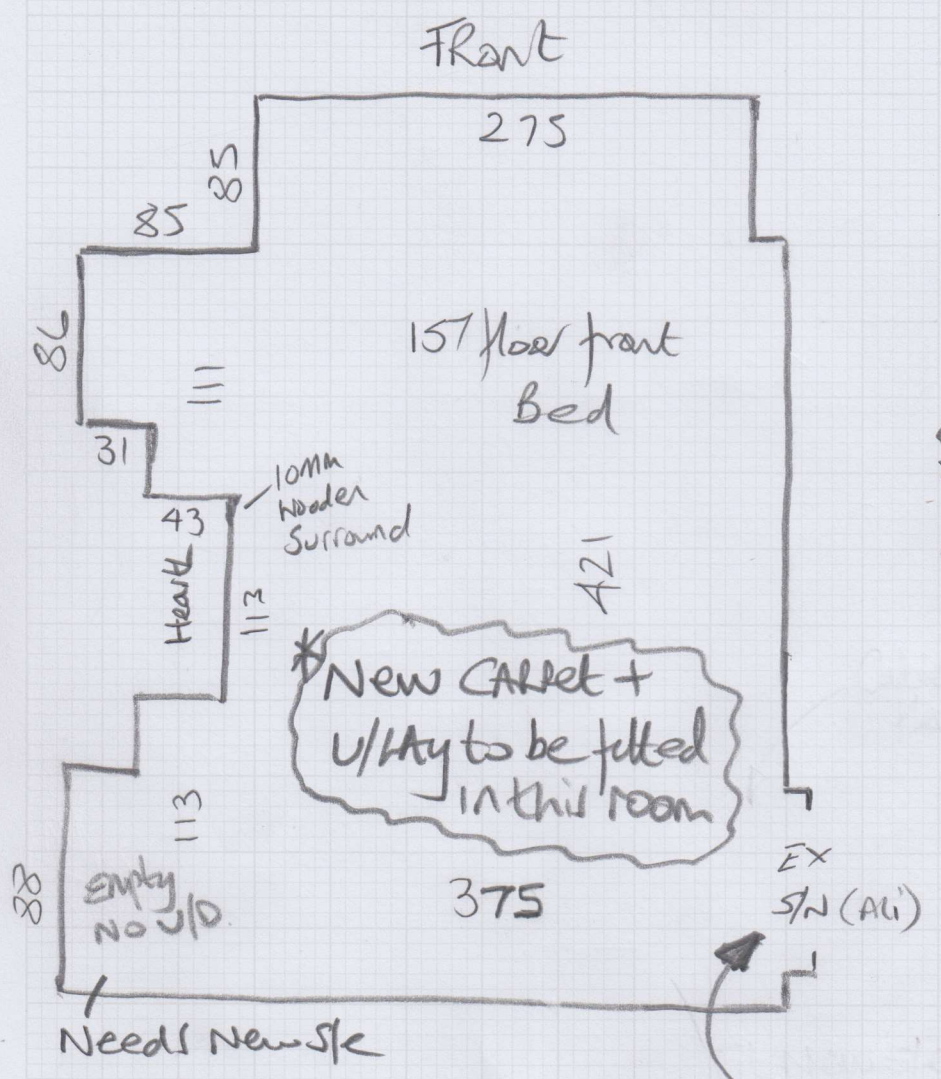 FRont
275
85
85
86
111
1ST floor front
Bed
31
10MM
Wooden
Surround
43
Hearth
113
421
*New CARPet +
U/LAy to be fitted
in this room
113
88
Empty
NO U/D.
375
EX
S/N (ALi)
Needs New S/E